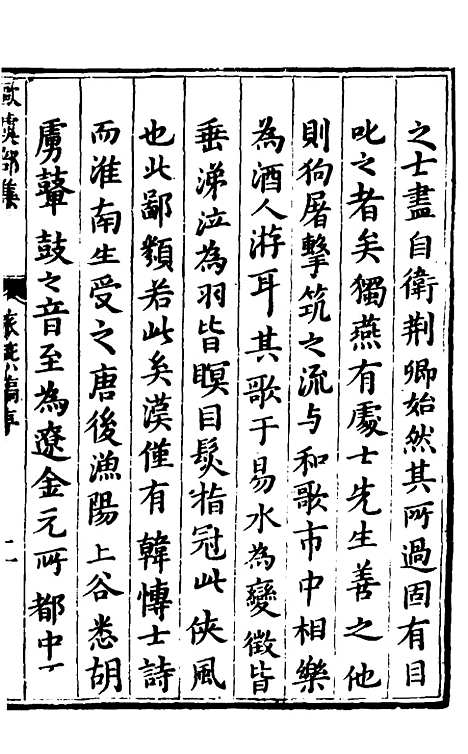 之士盡自衛荆卿始然其所過固有目
叱之者矣獨燕有處士先生善之他
則狗屠擊筑之流与和歌市中相樂
為酒人游耳其歌于易水為變徵皆
垂涕泣為羽皆瞑目髮指冠此俠風
也此鄙類若此矣漢僅有韓博士詩
而淮南生受之唐後漁陽上谷悉胡
虜鼙鼓之音至為遼金元所都中
甔集